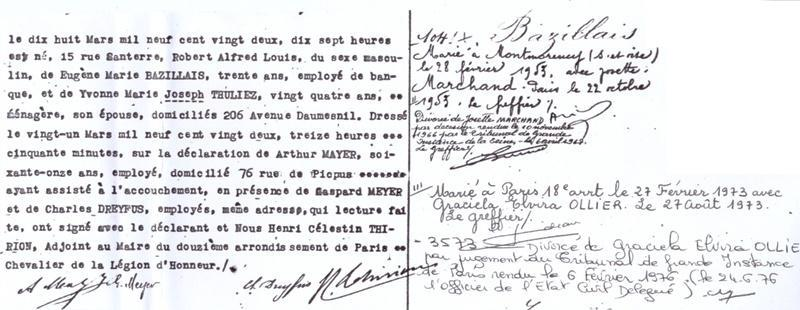 le dix huit Mars mil neuf cent vingt deux, dix sept heures
est né, 15 rue Santerre, Robert Alfred Louis, du sexe mascu-
lin, de Eugène Marie BAZILLAIS, trente ans, employé de ban-
que, et de Yvonne Marie Joseph THULIEZ, vingt quatre ans,
ménagère, son épouse, domiciliés 206 Avenue Daumesnil. Dressé
le vingt-un Mars mil neuf cent vingt deux, treize heures
cinquante minutes, sur la déclaration de Arthur MAYER, soi-
xante-onze ans, employé, domicilié 76 rue de Picpus
ayant assisté à l'accouchement, en présence de Gaspard MEYER
et de Charles DREYFUS, employés, même adresse, qui lecture fai
te, ont signé avec le déclarant et Nous Henri Célestin THI-
RION, Adjoint au Maire du douzième arrondissement de Paris
Chevalier de la Légion d'Honneur./.
Bazillais
Marié à Montmorency (S. et oise)
le 28 février 1953 avec Josette
Marchand. Paris le 22 octobre
1953. Le Greffier /.
Divorcé de Josette MARCHAND
par décision rendue le 10 novembre
1966 par le tribunal de Grande
Instance de la Seine.
Le greffier/.
Marié à Paris 18e arrt le 27 Février 1973 avec
Graciela Elvira OLLIER. Le 27 Août 1973.
Le greffier/.
- 3573 Divorcé de Graciela Elvira OLLIE
par jugement du Tribunal de Grande Instance
de Paris rendu le 6 Février 1976 (le 24.6.76
l'officier de l'Etat Civil Délégué)